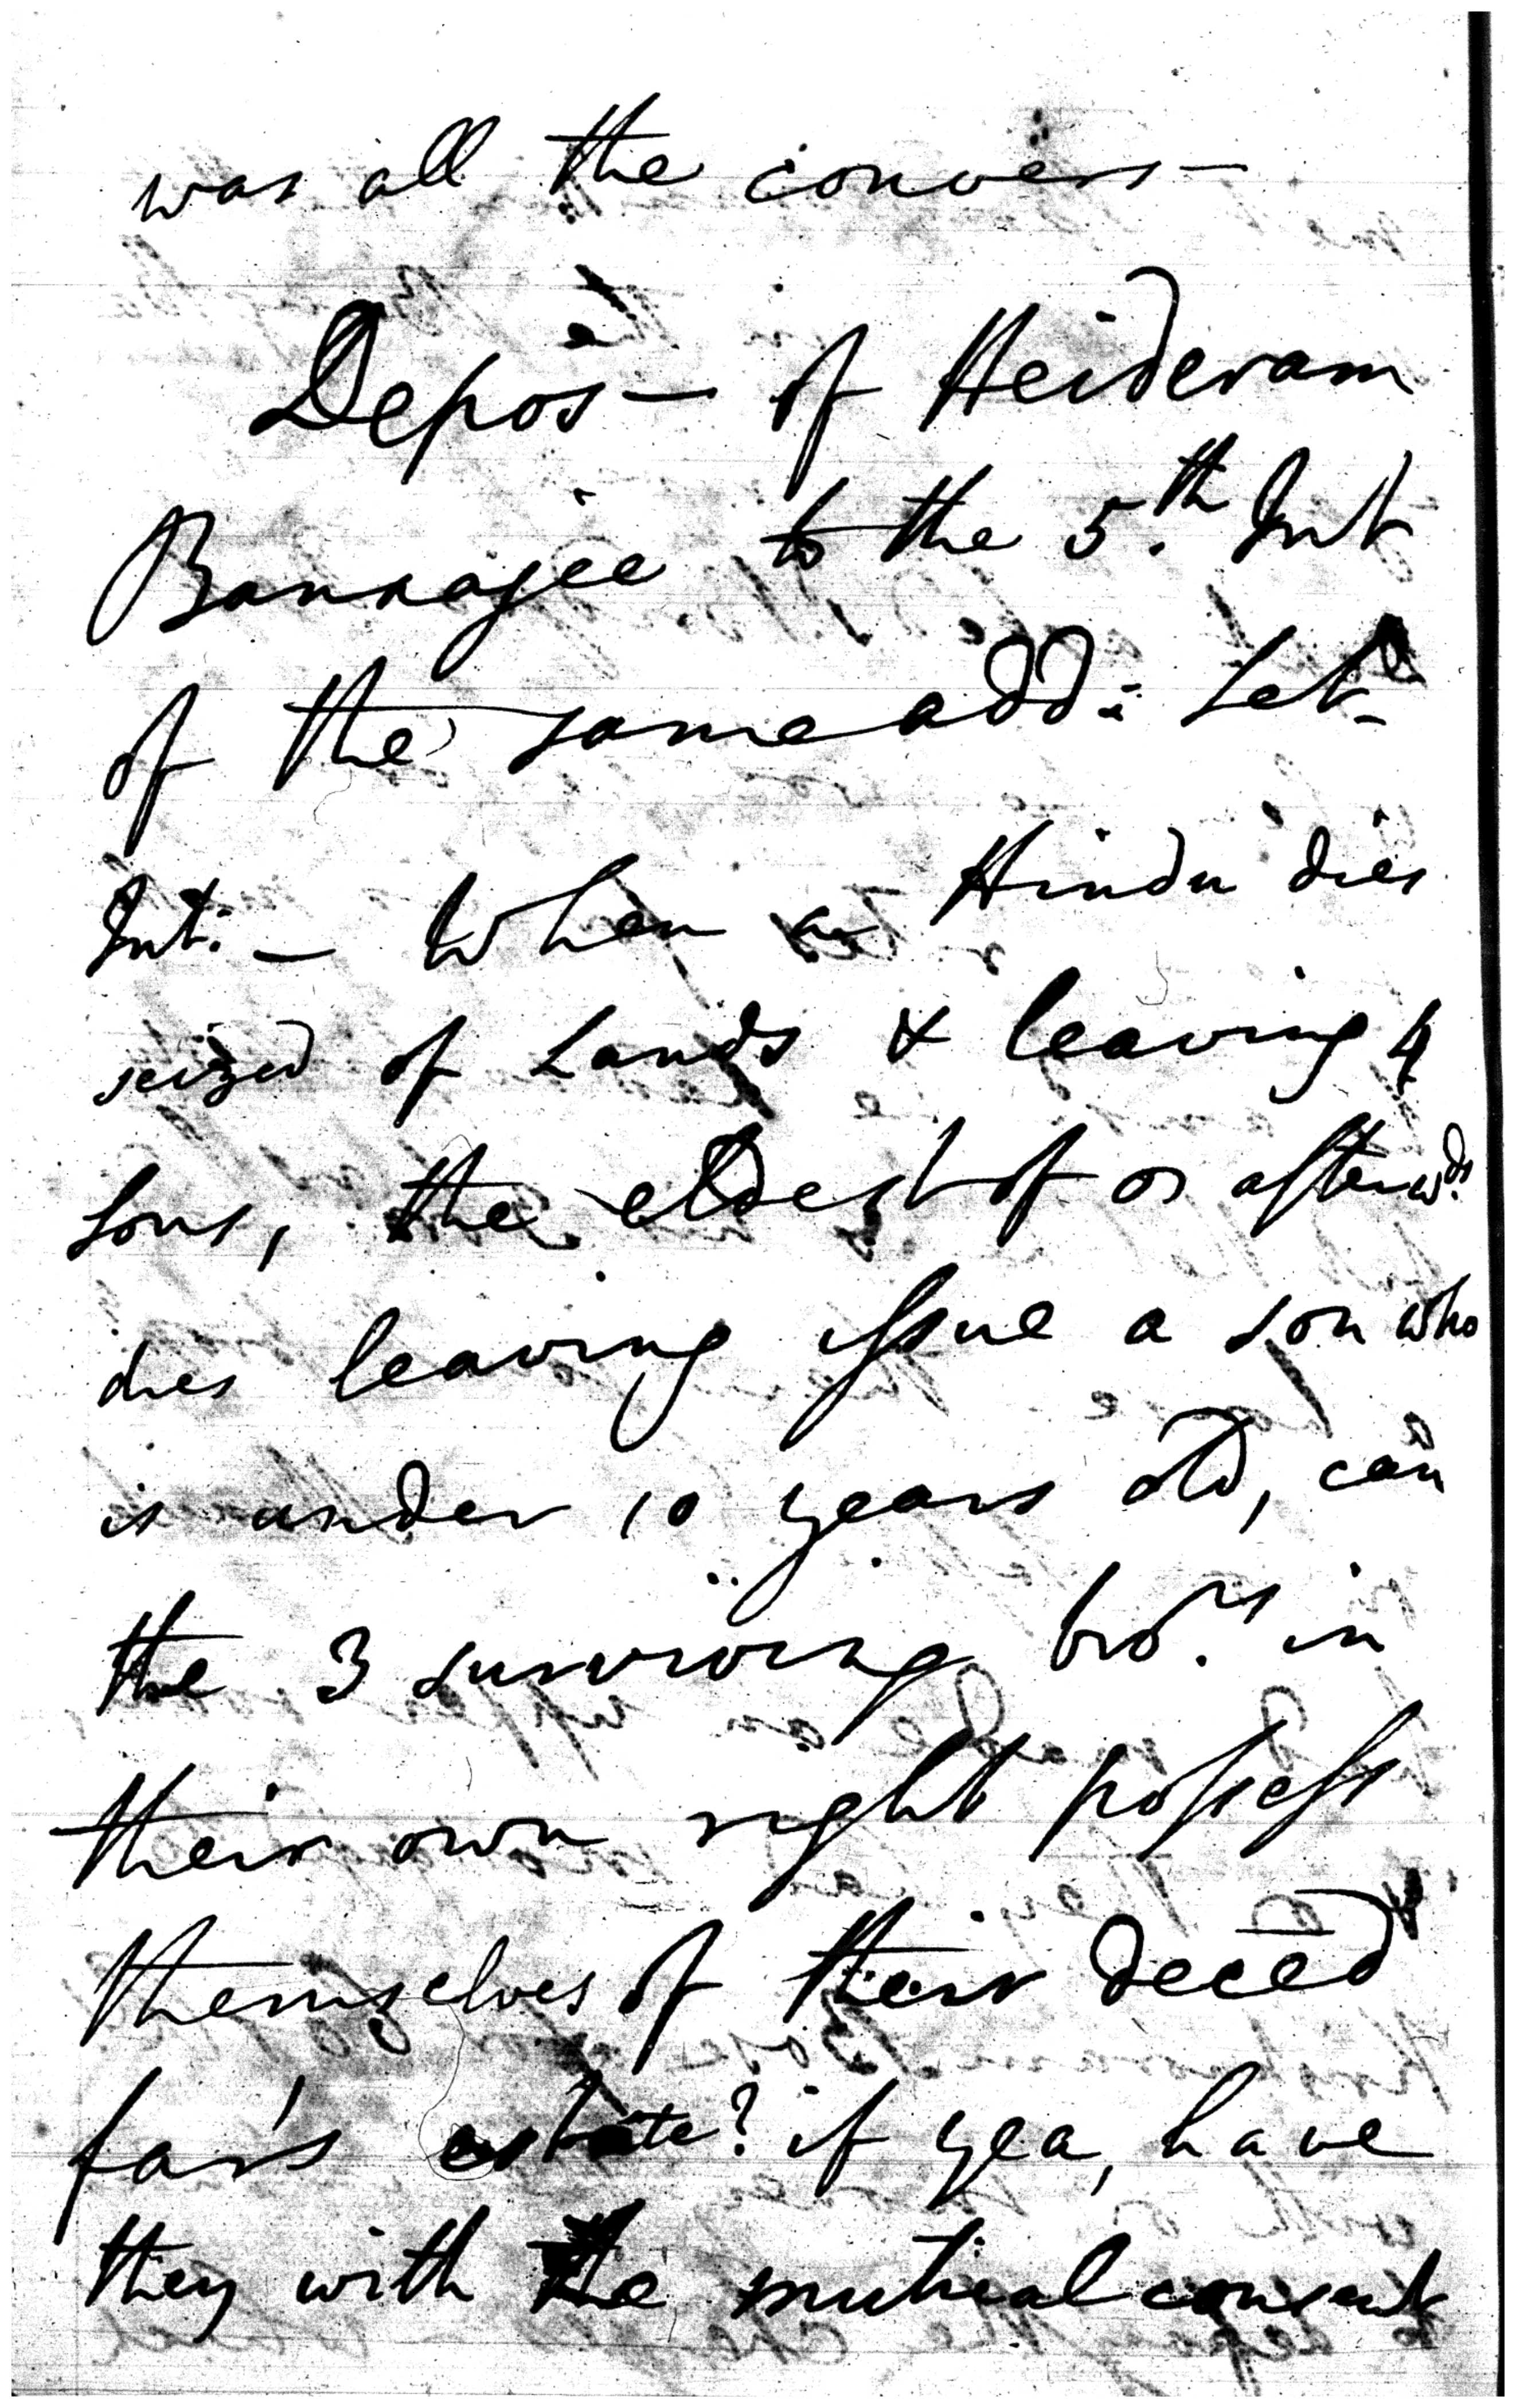 was all the convers—
Depos— of Heideram
Bannajee to the 5.th Int
of the same add: Set—
Int: — When a Hindu dies
seized of Lands & leaving 4
Sons, the eldest of or afterwds.
dies leaving issue a son who
is under 10 years old, can
the 3 surviving bro.rs in
their own right possess
themselves of their deced
far's estate? if yea, have
they with the mutual consent